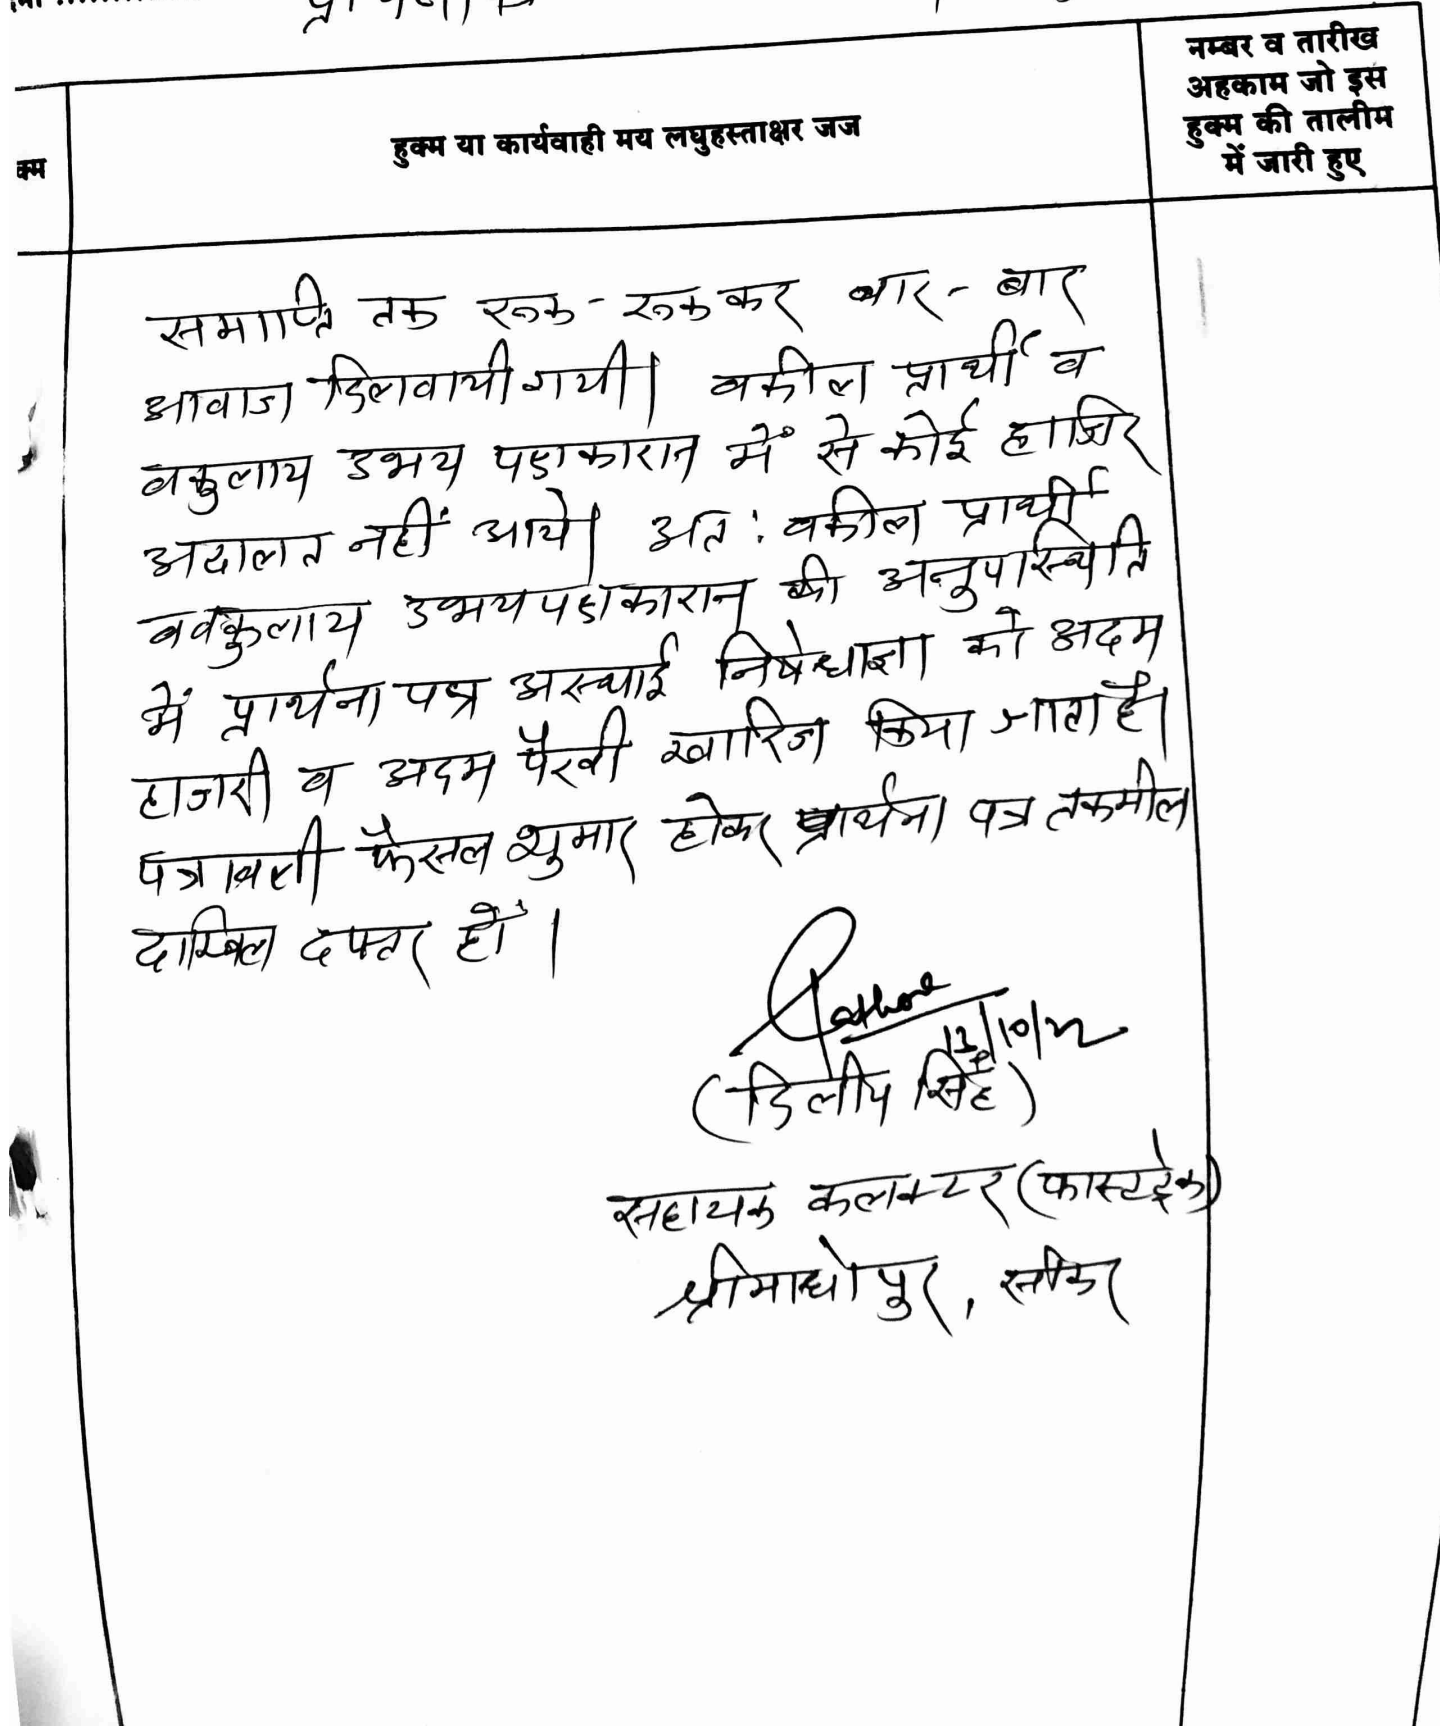 क्म
हुक्म या कार्यवाही मय लघुहस्ताक्षर जज
नम्बर व तारीख
अहकाम जो इस
हुक्म की तालीम
में जारी हुए
समाप्ति तक रूक-रूककर बार-बार
आवाज दिलवायी गयी। वकील प्रार्थी व
वकुलाय उभय पक्षकारान में से कोई हाजिर
अदालत नहीं आये। अत: वकील प्रार्थी
व वकुलाय उभयपक्षकारान् की अनुपस्थिति
में प्रार्थना पत्र अस्थाई निषेधाज्ञा को अदम
हाजरी व अदम पैरवी खारिज किया जाता है।
पत्रावली फैसल शुमार होकर प्रार्थना पत्र तकमील
दाखिल दफ्तर हों।
13/10/22
(दिलीप सिंह)
सहायक कलक्टर (फास्टट्रेक)
श्रीमाधोपुर, सीकर